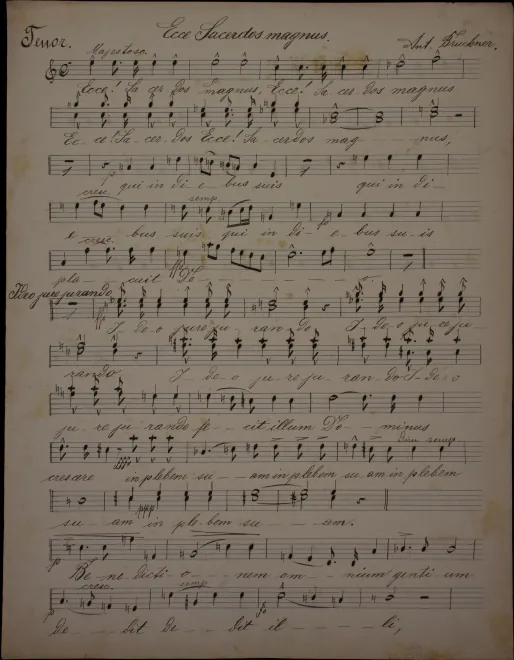 Ecce Sacerdos magnus.
Tenor.
Majestoso.
Ant. Bruckner.
Ecce! Sa cer dos magnus, Ecce! Sa cer dos magnus
Ec - ce! Sa - cer - dos Ecce! Sa - cerdos mag - - - nus,
p
cresc. qui in di e - bus suis qui in di -
semp.
e - bus suis qui in di - e - bus su - is
cresc.
pla cuit De - - - - - - - -
Ideo jure jurando
I - de - o jure ju - ran do I - de - o ju re ju
rando I - de - o ju - re ju - ran - do I - de - o
ju - re ju - rando fe - - cit illum Do - - minus
dim. semp.
crescere in plebem su - - am in plebem su am in plebem
ppp
su - - am in ple - bem su - - - am.
p
Be - ne dicti o - - - nem om - - - nium genti um
cresc.
semp.
p
De - - - dit De - - dit il - - - - li,